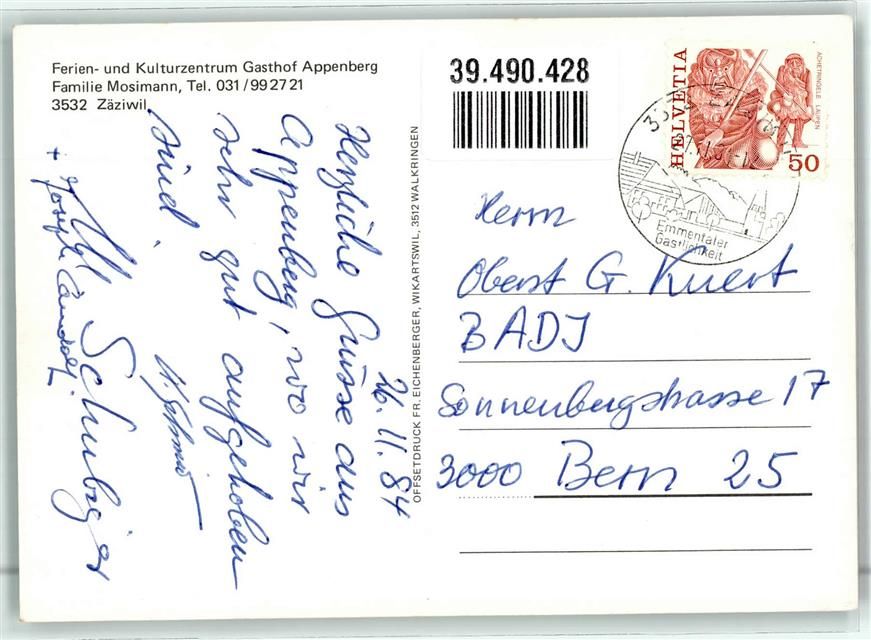 Ferien- und Kulturzentrum Gasthof Appenberg
Familie Mosimann, Tel. 031/99 27 21
3532 Zäziwil
26.11.84
Herzliche Grüsse aus
Appenberg, wo wir
sehr gut aufgehoben
sind.
Schubiger
+ Joseph
OFFSETDRUCK FR. EICHENBERGER, WIKARTSWIL, 3512 WALKRINGEN
39.490.428
HELVETIA
ACHETRINGELE LAUPEN
50
Emmentaler
Gastlichkeit
Herrn
Oberst G. Kuert
BADJ
Sonnenbergstrasse 17
3000 Bern 25